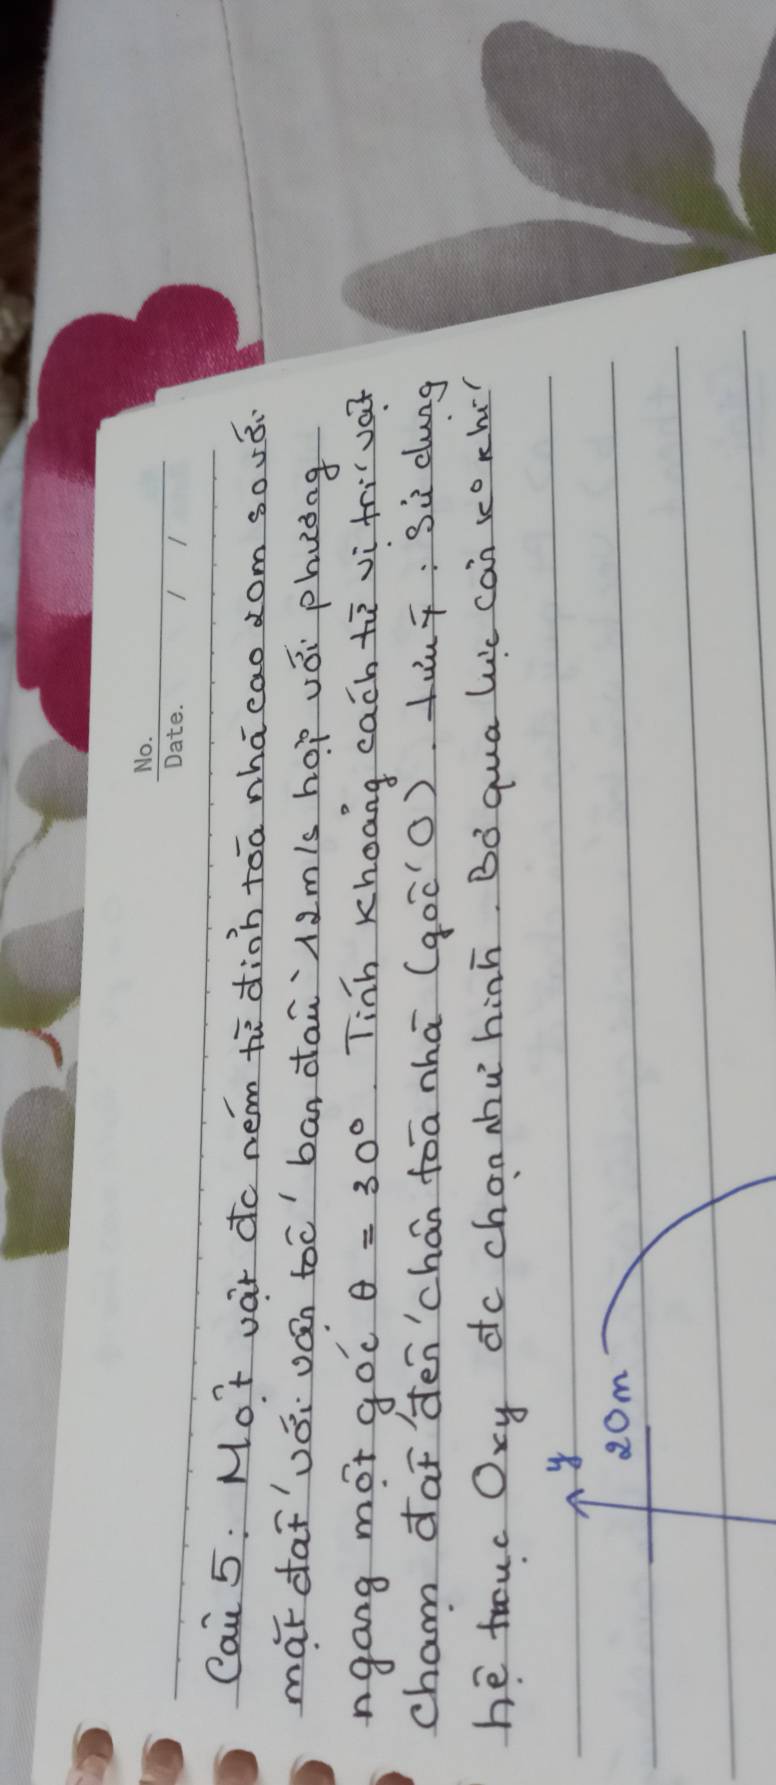 No.
Date. / /
Câu 5: Một vật đc ném từ đỉnh toà nhà cao 20m so với
mặt đất với vận tốc ban đầu 12m/s hợp với phương
ngang một góc θ = 30°. Tính khoảng cách từ vị trí vật
chạm đất đến chân toà nhà (gốc O). Lưu ý: Sử dụng
hệ trục Oxy đc chọn như hình. Bỏ qua lực cản k° khí
y
20m